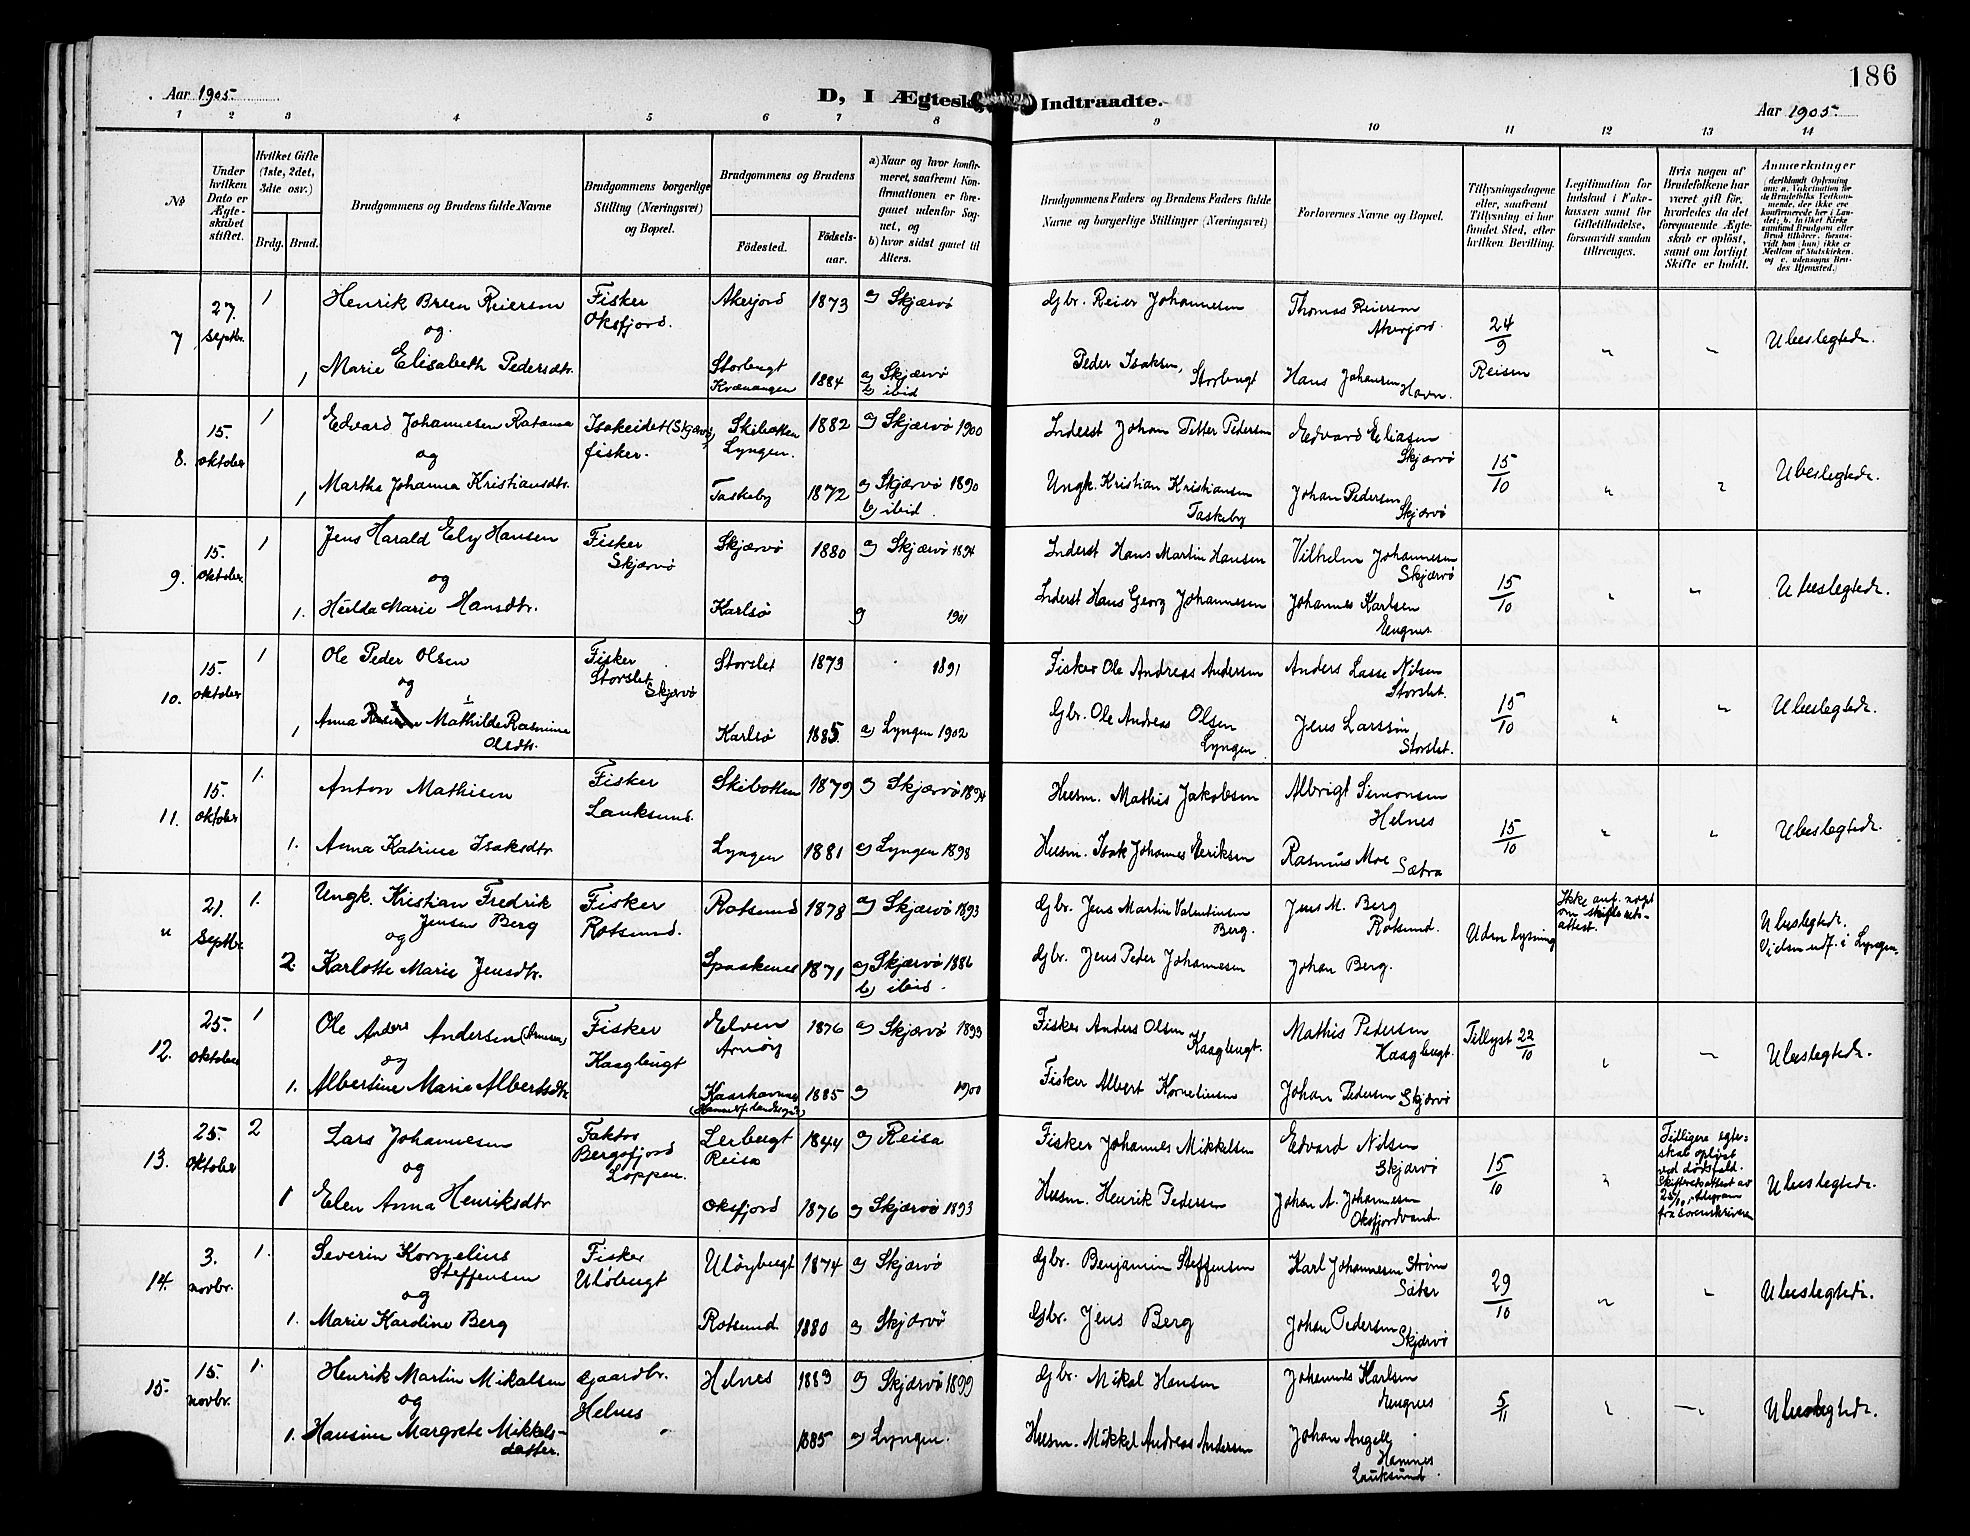 Aar 1905.
D, I Ægtesk
Indtraadte.
186
Aar 1905.
1 2 3 4 5 6 7 8 9 10 11 12 13 14
No
Under hvilken Dato er Ægteskabet stiftet.
Hvilket Gifte (1ste, 2det, 3die osv.)
Brdg. Brud.
Brudgommens og Brudens fulde Navne
Brudgommens borgerlige Stilling (Næringsvei) og Bopæl.
Brudgommens og Brudens
Fødested. Fødselsaar.
a) Naar og hvor konfirmeret, saafremt Konfirmationen er foregaaet udenfor Sognet, og
b) hvor sidst gaaet til Alters.
Brudgommens Faders og Brudens Faders fulde Navne og borgerlige Stillinger (Næringsvei)
Forlovernes Navne og Bopæl.
Tillysningsdagene eller, saafremt Tillysning ei har fundet Sted, efter hvilken Bevilling.
Legitimation for Indskud i Enkekassen samt for Giftetilladelse, forsaavidt saadan tiltrænges.
Hvis nogen af Brudefolkene har været gift før, hvorledes da det foregaaende Ægteskab er opløst, samt om lovligt Skifte er holdt.
Anmærkninger
(deriblandt Oplysning om: a. Vakcination for de Brudefolks Vedkommende, der ikke ere konfirmerede her i Landet; b. hvilket Kirkesamfund Brudgom eller Brud tilhører, forsaavidt han (hun) ikke er Medlem af Statskirken, og c. udensogns Brudes Hjemsted.)
7 27. septbr. 1 Henrik Breen Reiersen Fisker Oksfjord. Akerjord 1873 a) Skjærvø Gbr. Reier Johannesen Thomas Reiersen Akerjord. 24/9 Reisen " " Ubeslegtede.
og
1 Marie Elisabeth Pedersdtr. Storbugt Kvænangen 1884 a) Skjærvø b) ibid Peder Isaksen, Storbugt Hans Johansen Havn.
8. 15. oktober 1 Edvard Johannesen Ratama Isakeidet (Skjærvø) fisker. Skibotten Lyngen. 1882 a) Skjærvø 1900 Inderst Johan Petter Pedersen Edvard Eliasen Skjærvø 15/10 " " Ubeslegtede.
og
1 Martha Johanna Kristiansdtr. Taskeby 1872 a) Skjærvø 1890 b) ibid. Ungk. Kristian Kristiansen Taskeby Johan Pedersen Skjærvø
9. 15. oktober 1 Jens Harald Ely Hansen Fisker Skjærvø Skjærvø 1880 a) Skjærvø 1894 Inderst Hans Martin Hansen Vilhelm Johannesen Skjærvø 15/10 " " Ubeslegtede.
og
1. Hilda Marie Hansdtr. Karlsø a) 1901 Inderst Hans Georg Johannesen Johannes Karlsen Engnes
10. 15. oktober 1 Ole Peder Olsen Fisker Storslet Skjærvø Storslet 1873 1891 Fisker Ole Andreas Andersen Anders Lasse Nilsen Storslet. 15/10 " " Ubeslegtede.
og
1 Anna Mathilde Rasmine Olsdtr. Karlsø 1885. a) Lyngen 1902 Gbr. Ole Andreas Olsen Lyngen Jens Larssøn Storslet.
11. 15. oktober 1. Anton Mathisen Fisker Lauksund. Skibotten 1879 a) Skjærvø 1894 Husm. Mathis Jakobsen Albrigt Simonsen Helnes 15/10 " " Ubeslegtede.
1. Anna Katrine Isaksdtr Lyngen 1881 a) Lyngen 1898 Husm. Isak Johannes Eeriksen Rasmus Moe Sætra
" 21. septbr. 1. Ungk. Kristian Fredrik Jensen Berg Fisker Rotsund. Rotsund 1878 a) Skjærvø 1893 Gbr. Jens Martin Valentinsen Berg. Jens M. Berg Rotsund. Uden lysning Ikke anf. nogt om skifteretsattest. Ubeslegtede. Vidsm. udf. i Lyngen.
og
2 Karlotte Marie Jensdtr. Spaakenes 1871 a) Skjærvø 1886 b) ibid. Gbr. Jens Peder Johannesen Johan Berg.
12. 25. oktober 1 Ole Anders Andersen Fisker Kaagbugt Elven Arnøy 1876 a) Skjærvø 1893 Fisker Anders Olsen Kaagbugt. Mathis Pedersen Kaagbugt. Tillyst 22/10 " " Ubeslegtede.
og
1. Albertine Marie Albertsdtr. Kaarhavnes 1885 a) 1900 Fisker Albert Kornelius­sen Johan Pedersen Skjærvø
13. 25. oktober 2 Lars Johannesen Faktor Bergsfjord Loppen. Lerbugt Reisa 1844 a) Reisa Fisker Johannes Mikkelsen Edvard Nilsen Skjærvø 15/10 " Tidligere egteskab opløst ved dødsfald. Skifteretsattest av 25/10, telegram fra sorenskriveren Ubeslegtede.
og
1 Elen Anna Henriksdtr Oksfjord 1876 a) Skjærvø 1893 Husm. Henrik Pedersen Johan A. Johannesen Oksfjordvand.
14. 3. novbr. 1. Severin Kornelius Steffensen Fisker Uløbugt Uløybugt 1874 a) Skjærvø Gbr. Benjamin Steffensen Karl Johannesen Strøm Sæter 29/10 " " Ubeslegtede.
og
1. Marie Kardine Berg Rotsund. 1880 a) Skjærvø Gbr. Jens Berg Johan Pedersen Skjærvø
15. 15. novbr. 1. Henrik Martin Mikalsen Gaardbr. Helnes Helnes 1883 a) Skjærvø 1899 Gbr. Mikal Hansen Johannes Karlsen Engnes 5/11 " " Ubeslegtede.
og
1. Hansine Margrete Mikkelsdatter. " 1885 a) Lyngen. Husm. Mikkel Andreas Andersen Johan Angell Hamnes Lauksund.